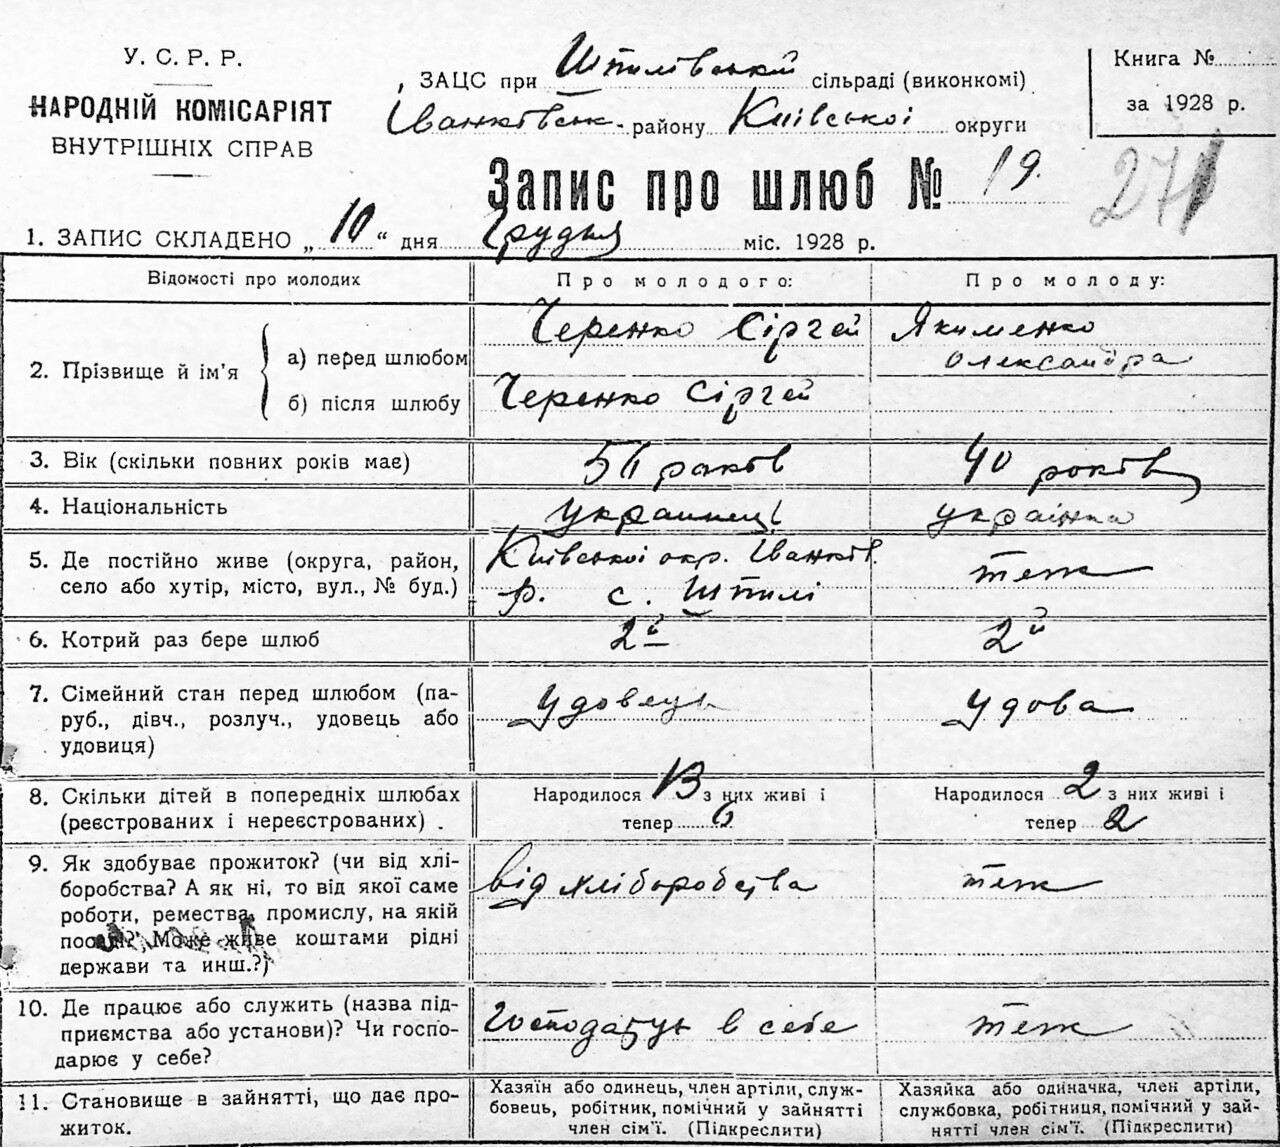 У. С. Р. Р.
НАРОДНІЙ КОМІСАРІЯТ
ВНУТРІШНІХ СПРАВ
ЗАЦС при Штилівській сільраді (виконкомі)
Іванківськ. району Київської округи
Книга №
за 1928 р.
Запис про шлюб № 19.
271
1. ЗАПИС СКЛАДЕНО „ 10 “ дня Грудня міс. 1928 р.
Відомості про молодих Про молодого: Про молоду:
2. Прізвище й ім’я
а) перед шлюбом Черенко Сіргей Якименко
Олександра
б) після шлюбу Черенко Сіргей
3. Вік (скільки повних років має) років 40 років
4. Національність украинець українка
5. Де постійно живе (округа, район,
село або хутір, місто, вул., № буд.)
Київської окр. Іванків.
р. с. Штилі
теж
6. Котрий раз бере шлюб 2й 2й
7. Сімейний стан перед шлюбом (па-
руб., дівч., розлуч., удовець або
удовиця)
удовець удова
8. Скільки дітей в попередніх шлюбах
(реєстрованих і нереєстрованих) .
Народилося 13 з них живі і
тепер 6
Народилося 2 з них живі і
тепер 2
9. Як здобуває прожиток? (чи від хлі-
боробства? А як ні, то від якої саме
роботи, ремества, промислу, на якій
посаді? Може живе коштами рідні
держави та инш.?)
від хліборобства теж
10. Де працює або служить (назва під-
приємства або установи)? Чи госпо-
дарює у себе?
в себе теж
11. Становище в зайнятті, що дає про-
житок.
Хазяїн або одинець, член артіли, служ-
бовець, робітник, помічний у зайнятті
член сім’ї. (Підкреслити)
Хазяйка або одиначка, член артіли,
службовка, робітниця, помічний у зай-
нятті член сім’ї. (Підкреслити)